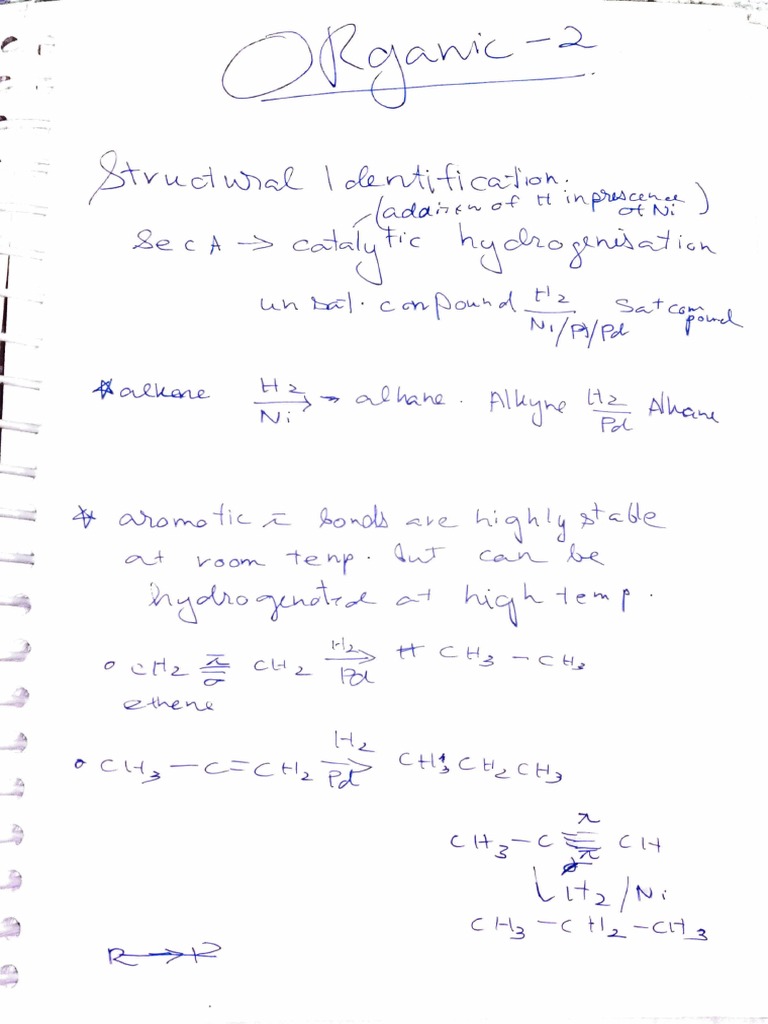 ORganic - 2
Structural Identification.
(addition of H in prescence of Ni)
Sec A → catalytic hydrogenisation
unsat. compound H2 / Ni/Pt/Pd Sat compound
* alkene H2 / Ni → alkane. Alkyne H2 / Pd Alkane
* aromatic π bonds are highly stable
at room temp. but can be
hydrogenated at high temp.
o CH2 π/σ CH2 H2 / Pd → CH3 - CH3
ethene
o CH3 - C = CH2 H2 / Pd → CH3 CH2 CH3
π
CH3 - C ≡ CH
π
↓ H2/Ni
CH3 - CH2 - CH3